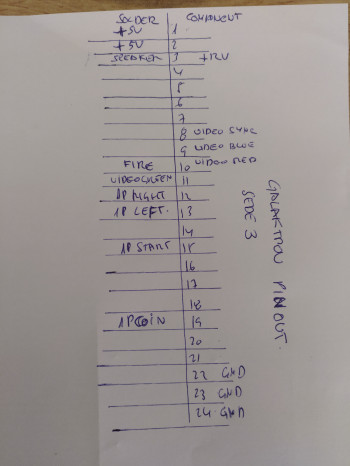 SOLDER COMPONENT
+5V 1
+5V 2
SPEAKER 3 +12V
4
5
6
7
8 VIDEO SYNC
9 VIDEO BLUE
FIRE 10 VIDEO RED
VIDEO GREEN 11
1P RIGHT 12
1P LEFT. 13
14
1P START 15
16
17
18
1P COIN 19
20
21
22 GND
23 GND
24 GND
GALAKTRON PINOUT.
SEDE 3